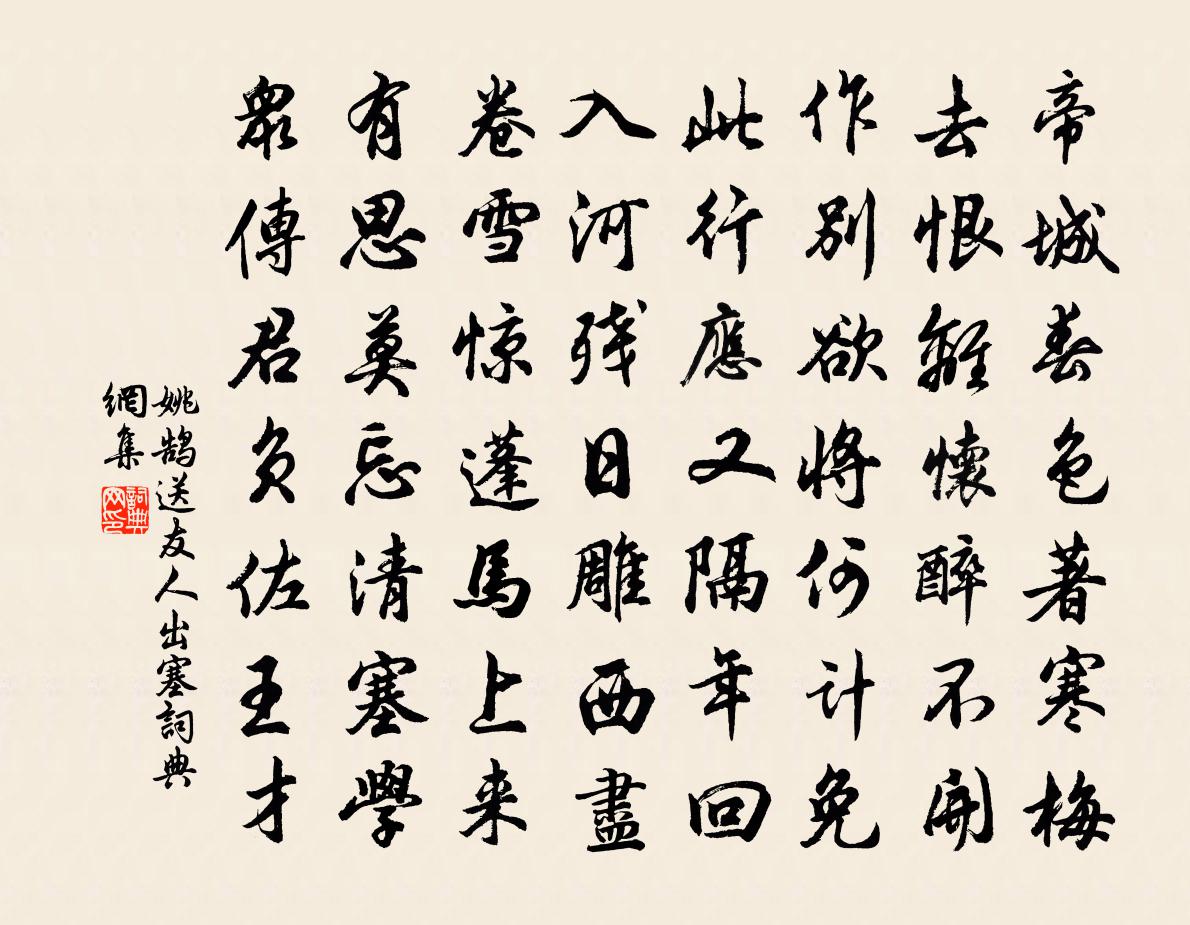 帝城春色著寒梅
去恨離懷醉不開
作別欲將何計免
此行應又隔年回
入河残日雕西盡
卷雪惊蓬馬上来
有思莫忘清塞學
眾傳君負佐王才
姚鹄送友人出塞詞典
網集
詞典
网印